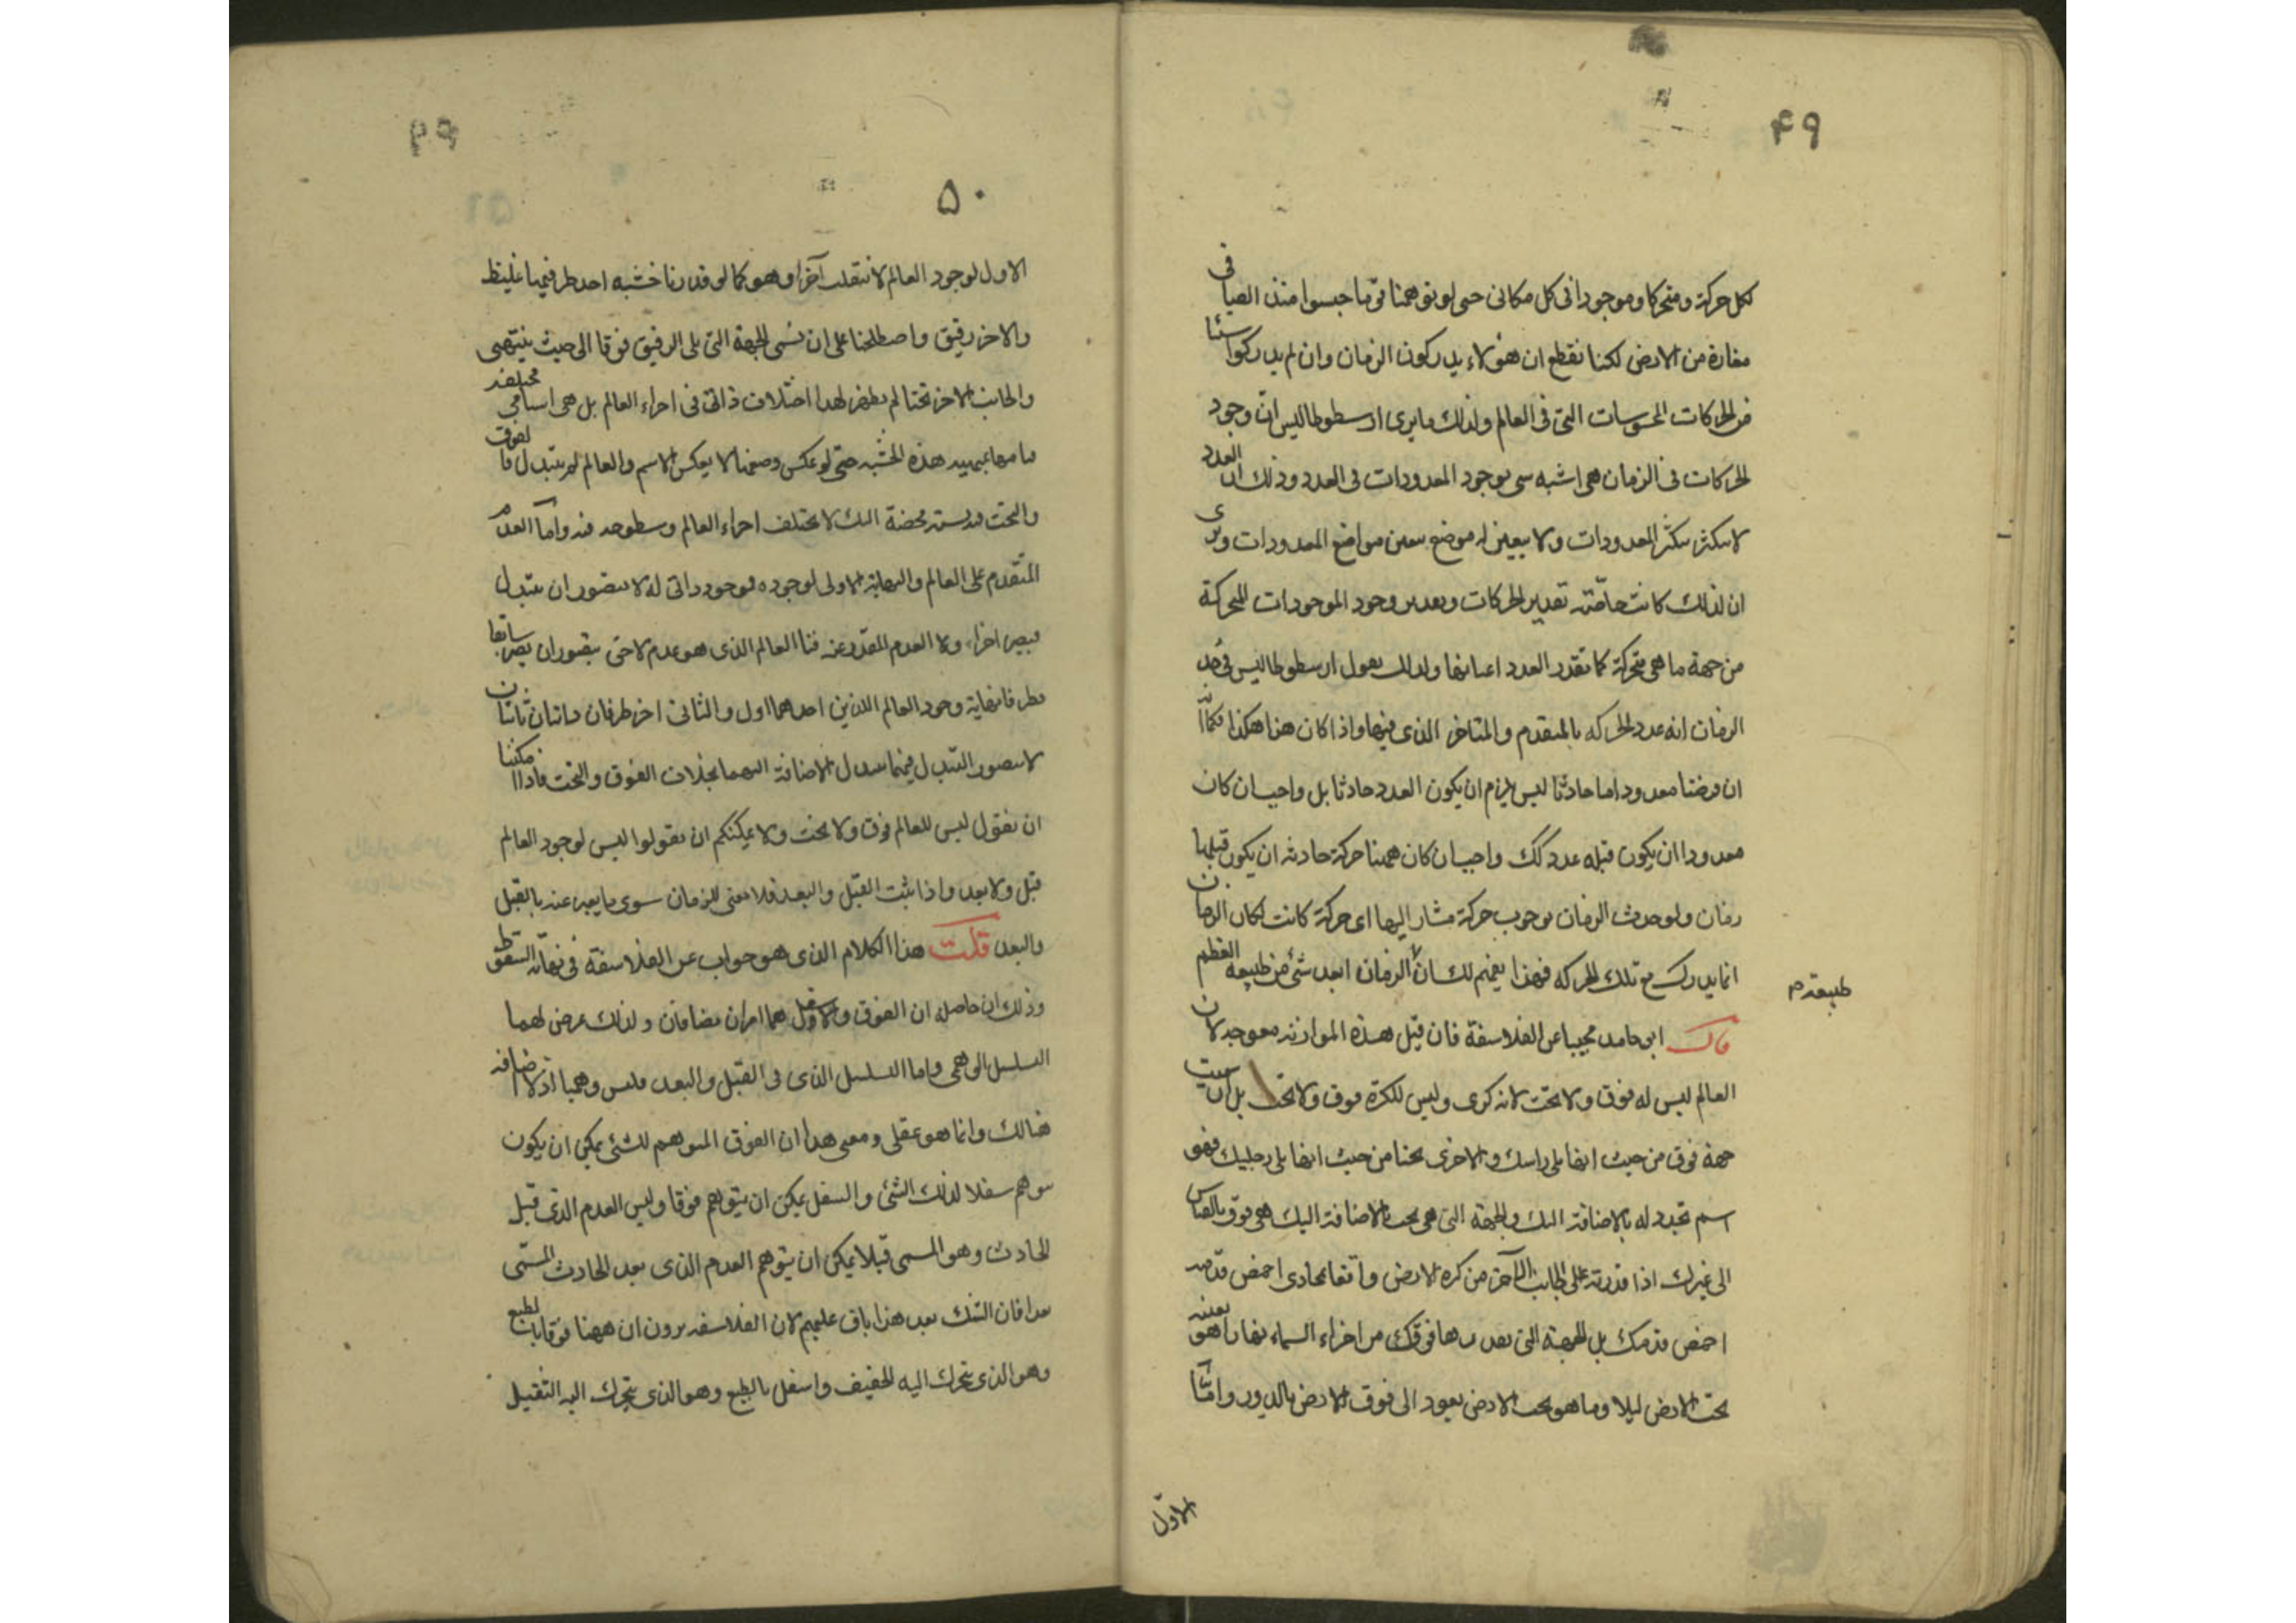 ۴۹
لكل حركة ومتحركا وموجودا فى كل مكان حتى لو توهمنا قوما حبسوا منذ الصبا فى
مغارة من الارض لكنا نقطع ان هؤلاء يدركون الزمان وان لم يدركوا شيئا
من الحركات المحسوسات التى فى العالم ولذلك ما يرى ارسطوطاليس ان وجود
الحركات فى الزمان هى اشبه شى بوجود المعدودات فى العدد وذلك ان العدد
لا يتكثر بتكثر المعدودات ولا يتعين له موضع بتعين مواضع المعدودات ويرى
ان لذلك كانت خاصته تقدير الحركات وتقدير وجود الموجودات المتحركة
من جهة ما هى متحركة كما تقدر العدد اعيانها ولذلك يقول ارسطوطاليس فى حد
الزمان انه عدد الحركه بالمتقدم والمتاخر الذى فيها واذا كان هذا هكذا فكما انه
ان فرضنا معدودا ما حادثا ليس يلزم ان يكون العدد حادثا بل واجب ان كان
معدودا ان يكون قبله عدد كك واجب ان كان ههنا حركة حادثه ان يكون قبلها
زمان ولو حدث الزمان بوجوب حركة مشار اليها اى حركة كانت لكان الزمان
انما يدرك مع تلك الحركه فهذا يفهم لك ان الزمان ابعد شئ من طبيعه العظم
طبيعة م
قال ابو حامد مجيبا عن الفلاسفة فان قيل هذه الموازنه معوجه لان
العالم ليس له فوق ولا تحت لانه كرى وليس للكرة فوق ولا تحت بل ان سميت
جهة فوق من حيث انها يلى راسك والاخرى تحتا من حيث انها يلى رجليك فهو
اسم تجدد له بالاضافة اليك والجهة التى هى تحت بالاضافة اليك هى فوق بالقياس
الى غيرك اذا قدرته على الجانب الآخر من كره الارض واقفا يحاذى اخمص قدمه
اخمص قدمك بل الجهة التى تقدرها فوقك من اجزاء السماء نهارا هو بعينه
تحت الارض ليلا وما هو تحت الارض يعود الى فوق الارض بالدور واما
الاول
۵۰
الاول لوجود العالم لا ينقلب آخرا وهو كما لو قدرنا خشبه احد طرفيها غليظ
والاخر رقيق واصطلحنا على ان نسمى الجهة التى يلى الرقيق فوقا الى حيث ينتهى
والجانب الاخر تحتا لم يظهر لهذا اختلاف ذاتى فى اجراء العالم بل هى اسامى مختلفه
قيامها بهيئة هذه الخشبه حتى لو عكس وضعها لا يعكس الاسم والعالم لم يتبدل فالفوق
والتحت نسبة محضة اليك لا يختلف اجراء العالم وسطوحه فيه واما العدم
المتقدم على العالم والنهاية الاولى لوجوده فوجود ذاتى له لا يتصور ان يتبدل
فيصير اخرا ولا العدم المقدر عند فنا العالم الذى هو عدم لاحق يتصور ان يصير سابقا
فطرفا نهاية وجود العالم اللذين احدهما اول والثانى اخر طرفان ذاتيان ثابتان
لا يتصور التبدل فيهما بتبدل الاضافة اليهما بخلاف الفوق والتحت فاذا امكننا
ان نقول ليس للعالم فوق ولا تحت ولا يمكنكم ان تقولوا ليس لوجود العالم
قبل ولا بعد واذا ثبت القبل والبعد فلا معنى للزمان سوى ما يعبر عنه بالقبل
والبعد قلت هذا الكلام الذى هو جواب عن الفلاسفة فى نهاية السقوط
وذلك ان حاصله ان الفوق والاسفل هما امران مضافان ولذلك عرض لهما
التسلسل الوهمى واما التسلسل الذى فى القبل والبعد فليس وهميا اذ لا اضافه
هنالك وانما هو عقلى ومعنى هذا ان الفوق المتوهم للشئ يمكن ان يكون
يتوهم سفلا لذلك الشئ والسفل يمكن ان يتوهم فوقا وليس العدم الذى قبل
الحادث وهو المسمى قبلا يمكن ان يتوهم العدم الذى بعد الحادث المسمى
بعدا فان الشك بعد هذا باق عليهم لان الفلاسفه يرون ان ههنا فوقا بالطبع
وهو الذى يتحرك اليه الخفيف واسفل بالطبع وهو الذى يتحرك اليه الثقيل